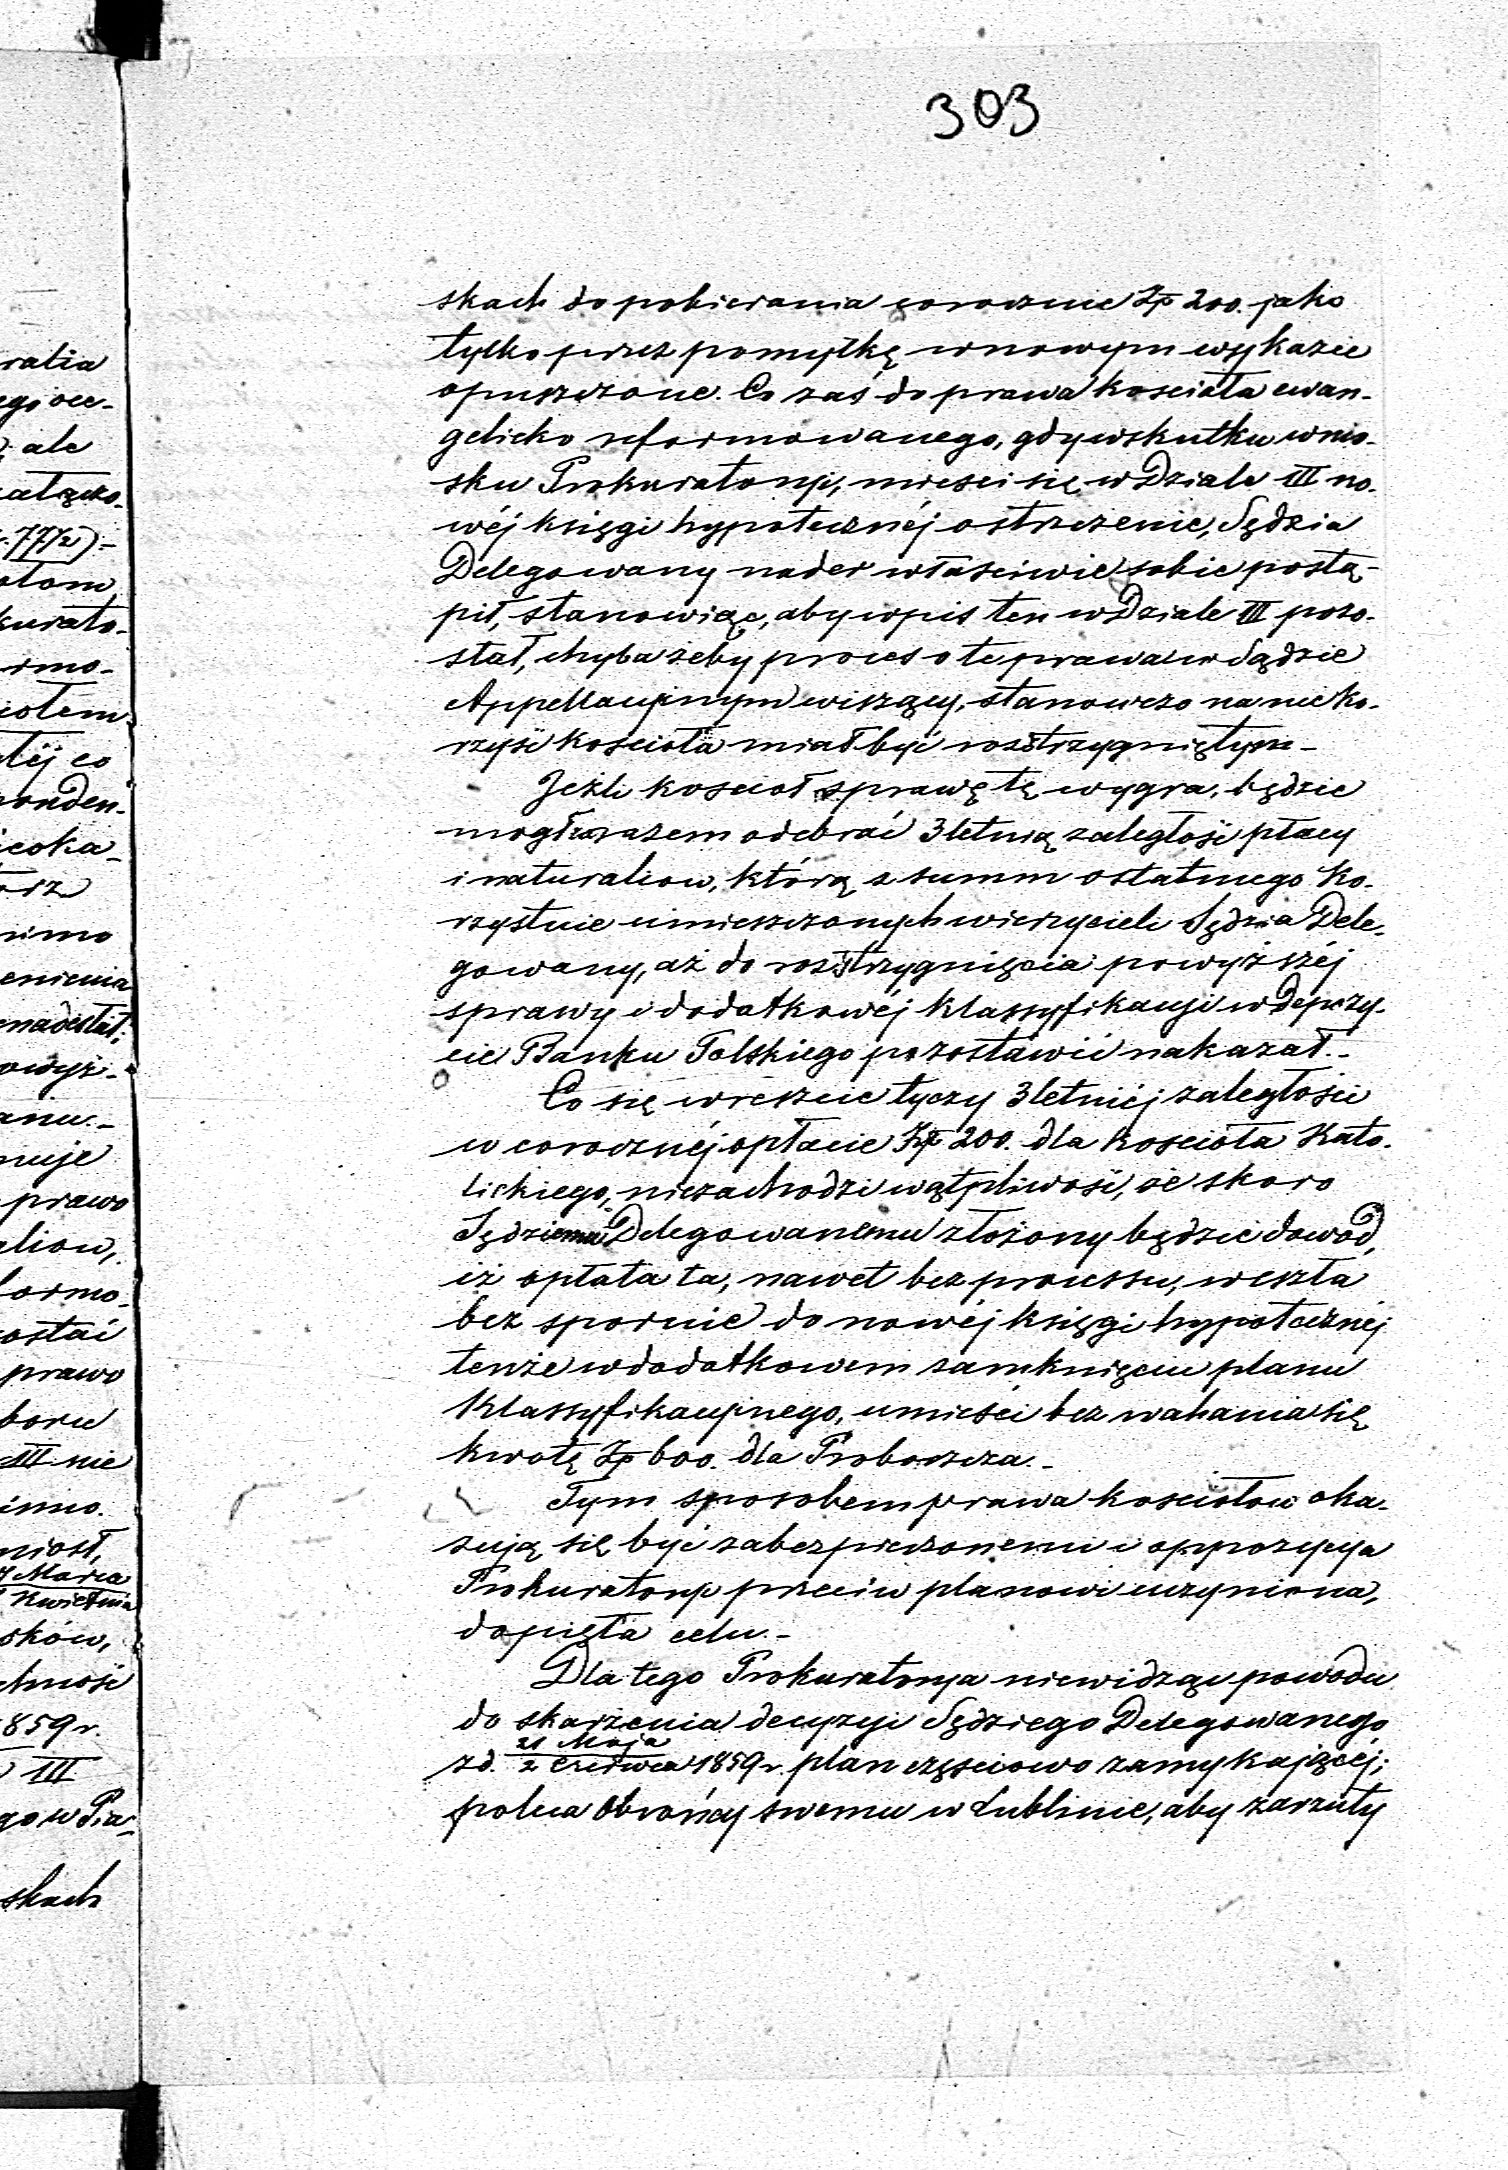 303
skach do pobierania corocznie Zp 200. jako
tylko przez pomyłkę w nowym wykazie
opuszczone. Co zaś do prawa kościoła ewan-
gelicko reformowanego, gdy wskutku wnio-
sku Prokuratoryi, mieści się w Dziale III no-
wéj księgi hypotecznéj ostrzeżenie, Sędzia
Delegowany nader właściwie sobie postą-
pił, stanowiąc, aby wpis ten w Dziale III pozo-
stał, chyba żeby proces o te prawa w Sądzie
Appellacyjnym wiszący, stanowczo na nieko-
rzyść kościoła miał być rozstrzygniętym -
Jeżli kościoł sprawę tę wygra, będzie
mogł zarazem odebrać 3 letnią zaległość płacy
i naturaliow, którą z summ ostatniego ko-
rzystnie umieszczonych wierzycieli Sędzia Dele-
gowany, aż do rozstrzygnięcia powyższéj
sprawy i dodatkowéj klassyfikacyi w depozy-
cie Banku Polskiego pozostawić nakazał. -
Co się wreszcie tyczy 3 letniéj zaległości
w corocznéj opłacie Zp 200. dla kościoła Kato-
lickiego, niezachodzi wątpliwość, że skoro
Sędziemu Delegowanemu złożony będzie dowod,
iż opłata ta, nawet bez processu, weszła
bez spornie do nowéj księgi hypotecznéj
tenże w dodatkowem zamknięciu planu
klassyfikacyjnego, umieści bez wahania się
kwotę Zp 600. dla Proboszcza. -
Tym sposobem prawa kościołow oka-
zują się być zabezpieczonemi i oppozycya
Prokuratoryi przeciw planowi uczyniona,
dopięła celu. -
Dla tego Prokuratorya niewidząc powodu
do skarżenia decyzyi Sędziego Delegowanego
z d. 21 Maja / 2 Czerwca 1859 r. plan częściowo zamykającéj;
poleca Obrońcy swemu w Lublinie, aby zarzuty